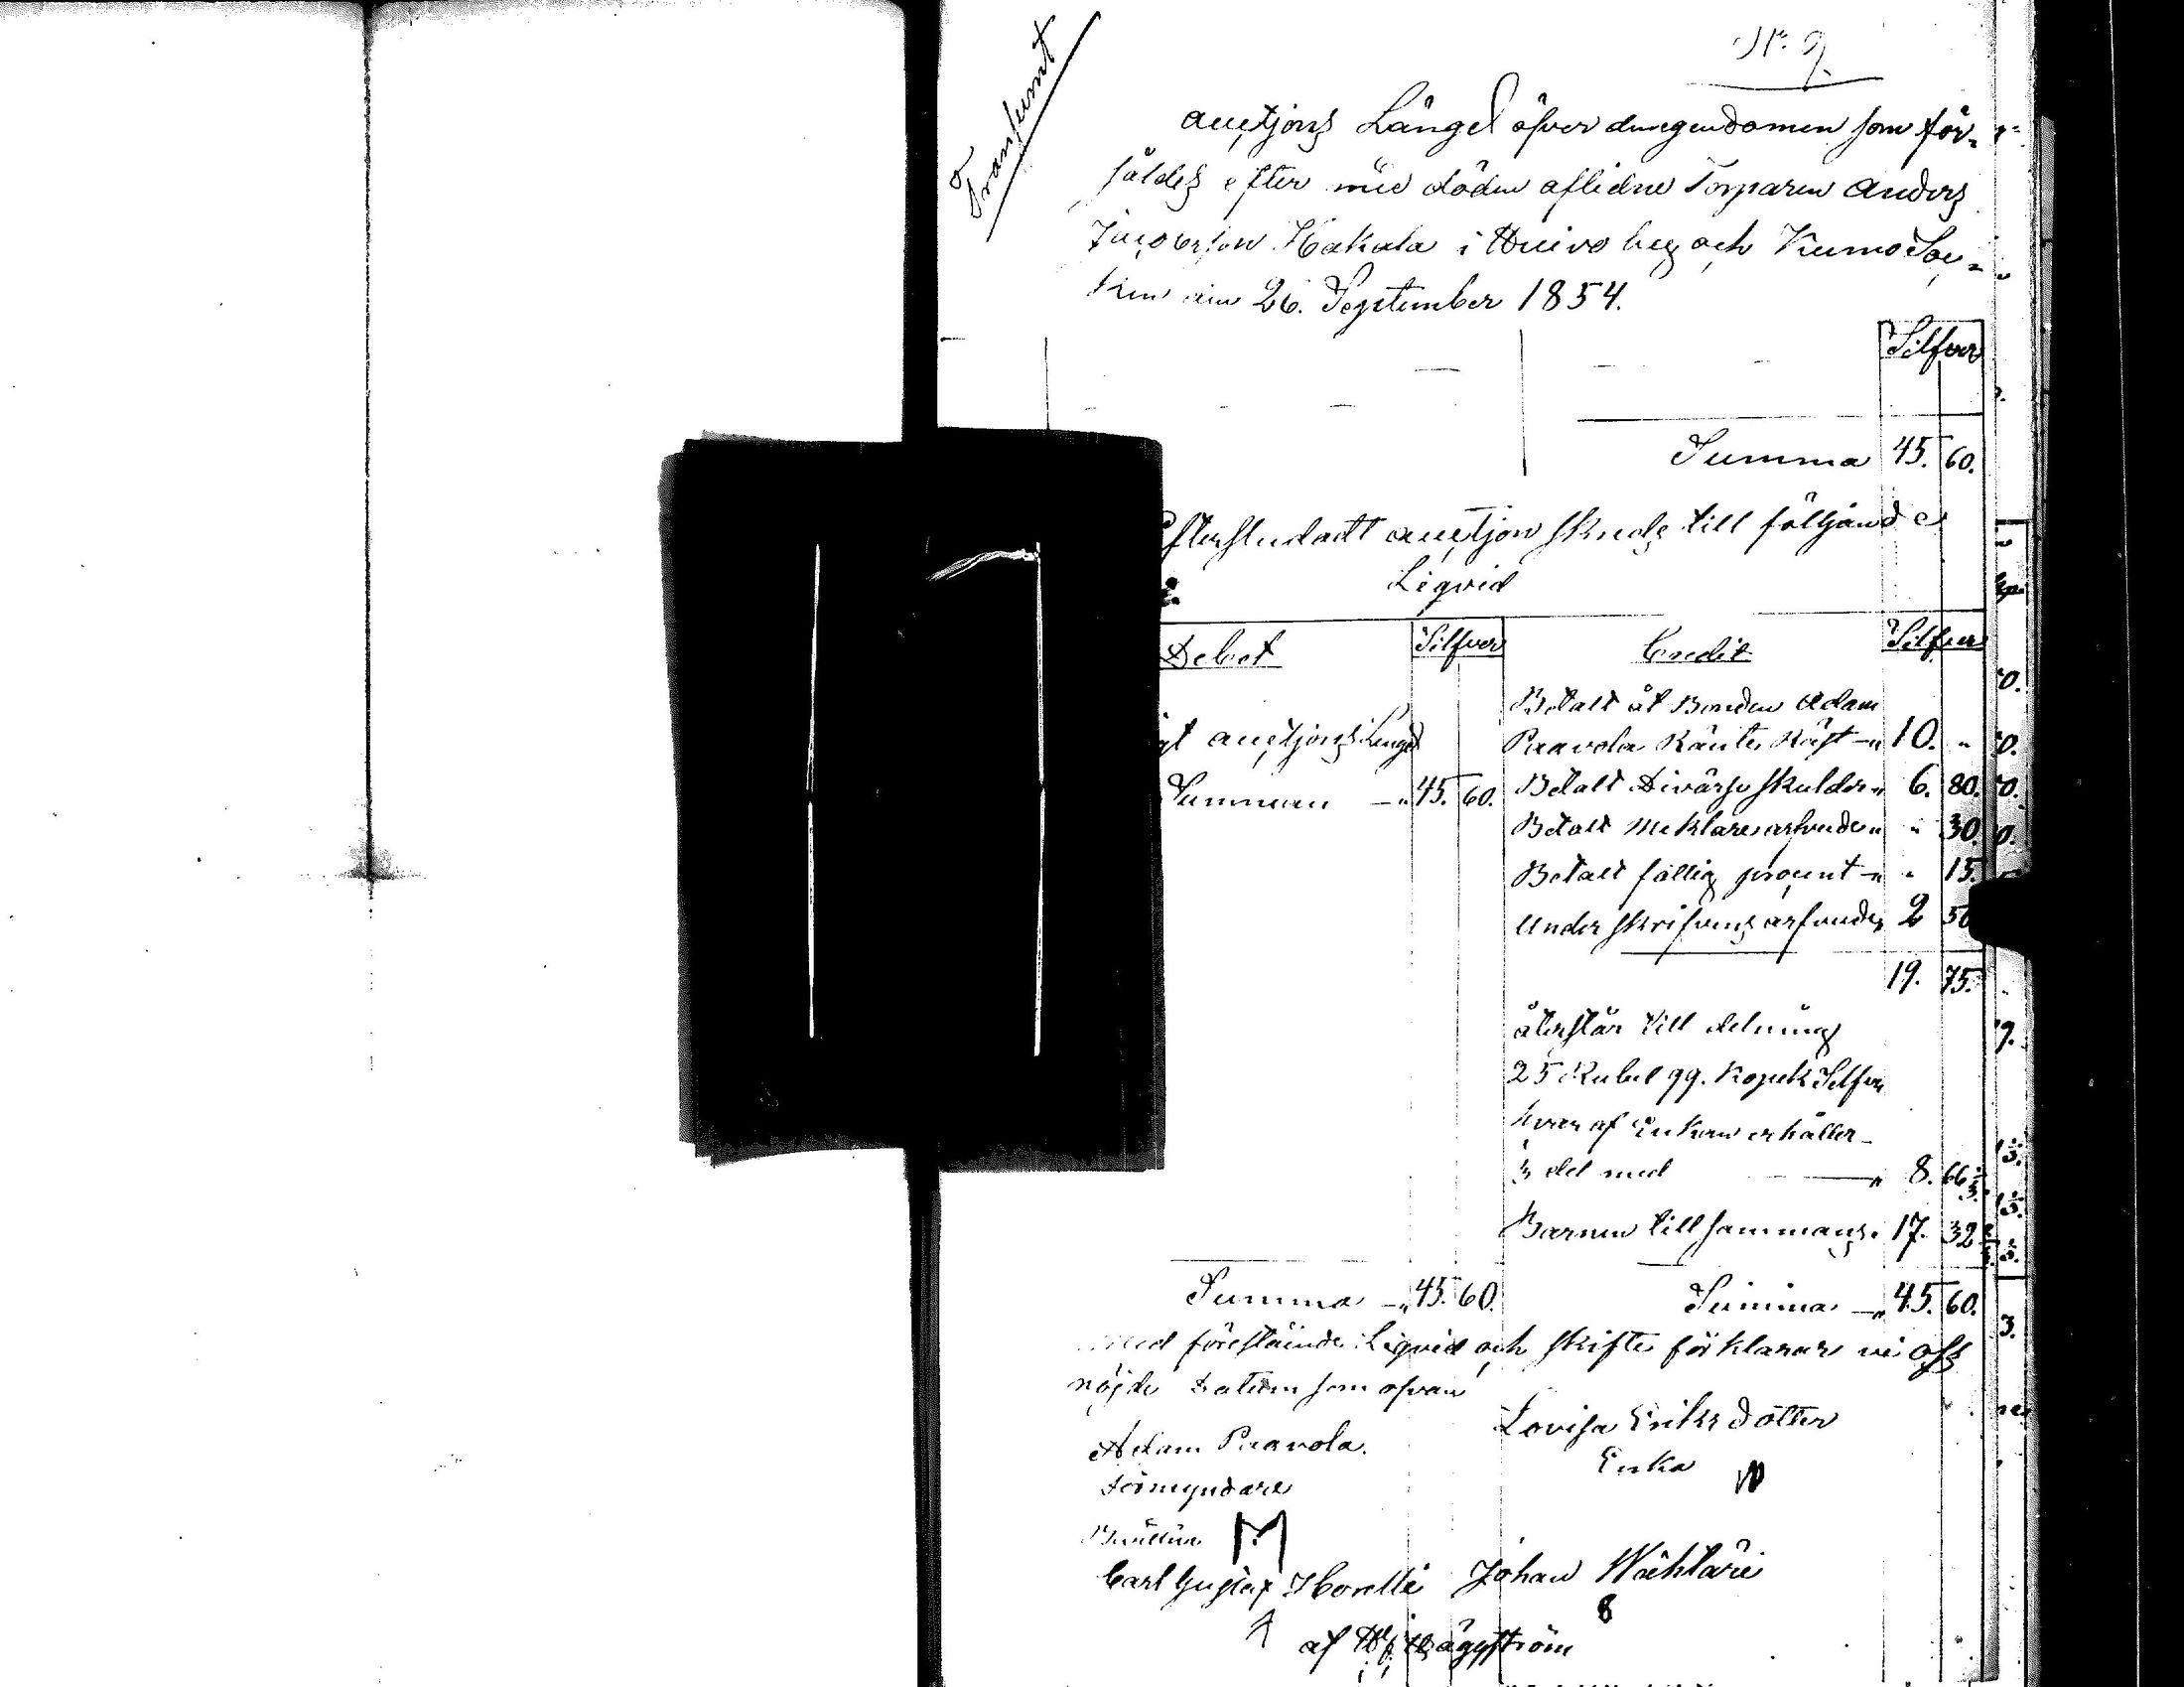 Nr. 9.
Transumt
Auctjons Längd öfver dunegendomen som för-
såldes efter med döden aflidne Torparen Anders
Jacobsson Hakala i Huivo by och Kumo Soc-
ken den 26. September 1854.
Silfver
Summa 45. 60.
Efterslutadt auctjon skreds till följande
Liqvid
Debet Silfver Credit Silfver
Betalt åt Bonden Adam
auctjons Lengd Paavola Ränte Räst 10. "
Summan 45. 60. Betalt Divärse skulder 6. 80.
Betalt Meklare arfvode " 30
Betalt fattig procent " 15.
Under skrifvens arfvode 2 50
19. 75.
återstår till delning
25 Rubel 99. Kopek Silfver
hvar af Enkan erhåller
⅓ del med 8. 66⅓.
Barnen till sammans 17. 32
Summa 45. 60. Summa 45. 60.
Med förestående Liqvid och skifte förklarar vi oss
nöjde datum som ofvan
Adam Paavola. Lovisa Eriks dotter
Förmyndare Enka
Carl Gustaf Johan
af Häggström